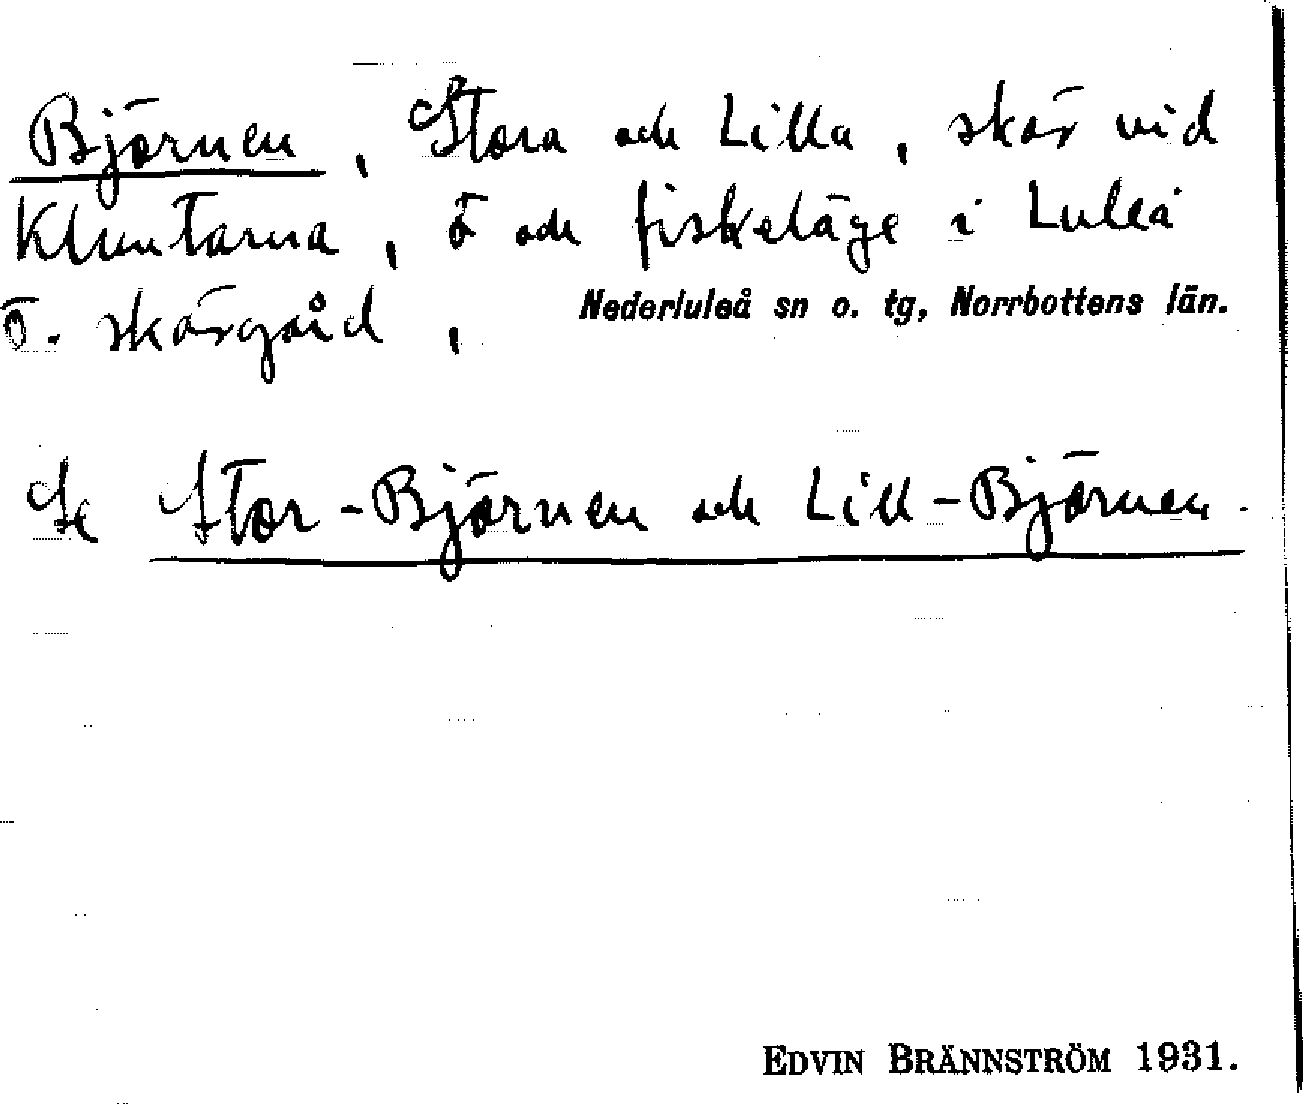 Björnen, Stora och Lilla, skär vid
Kluntarna, ö och fiskeläge i Luleå
ö. skärgård, Nederluleå sn o. tg, Norrbottens län.
Se Stor-Björnen och Lill-Björnen.
EDVIN BRÄNNSTRÖM 1931.